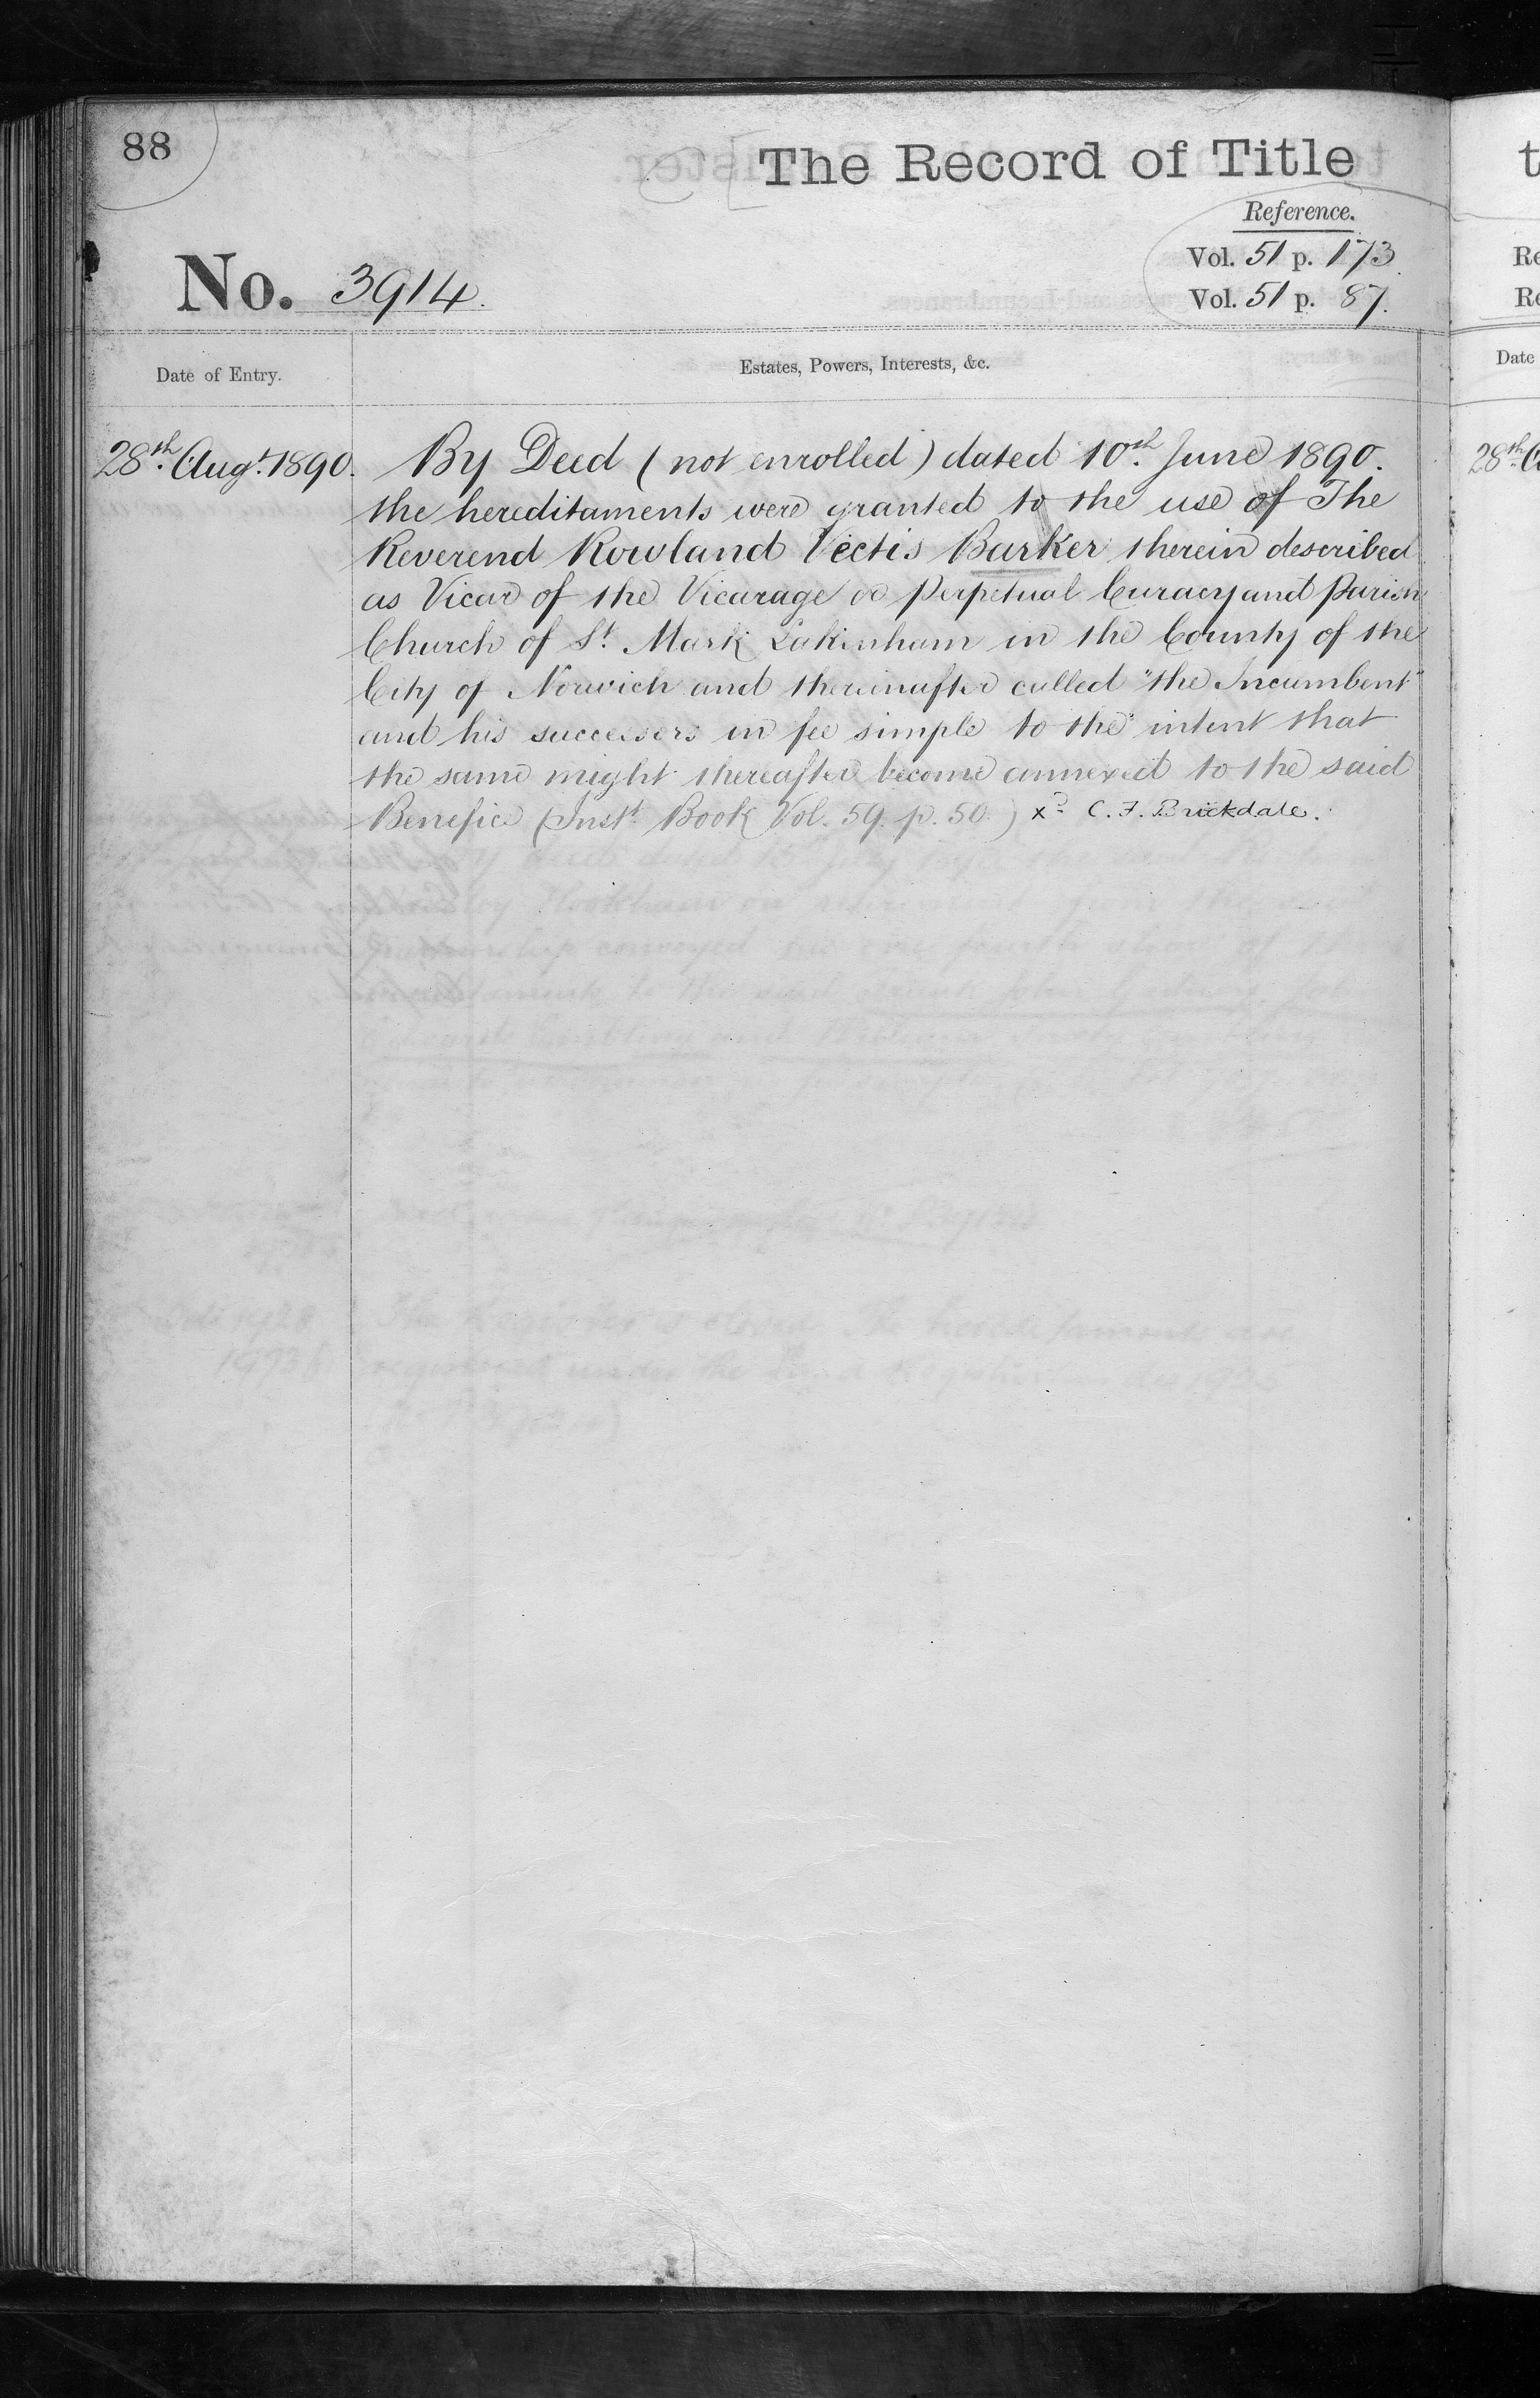 88
The Record of Title
Reference.
Vol. 51 p. 173.
Vol. 51 p. 87.
No. 3914.
Date of Entry.
Estates, Powers, Interests, &c.
28th. Augt. 1890. By Deed (not enrolled) dated 10th. June 1890.
the hereditaments were granted to the use of The
Reverend Rowland Vectis Barker therein described
as Vicar of the Vicarage or Perpetual Curacy and Parish
Church of St. Mark Lakenham in the County of the
City of Norwich and thereinafter called "the Incumbent"
and his successors in fee simple to the intent that
the same might thereafter become annexed to the said
Benefice (Inst. Book Vol. 59. p. 50.) xd. C. F. Brickdale.
t
Re
Re
Date
28th